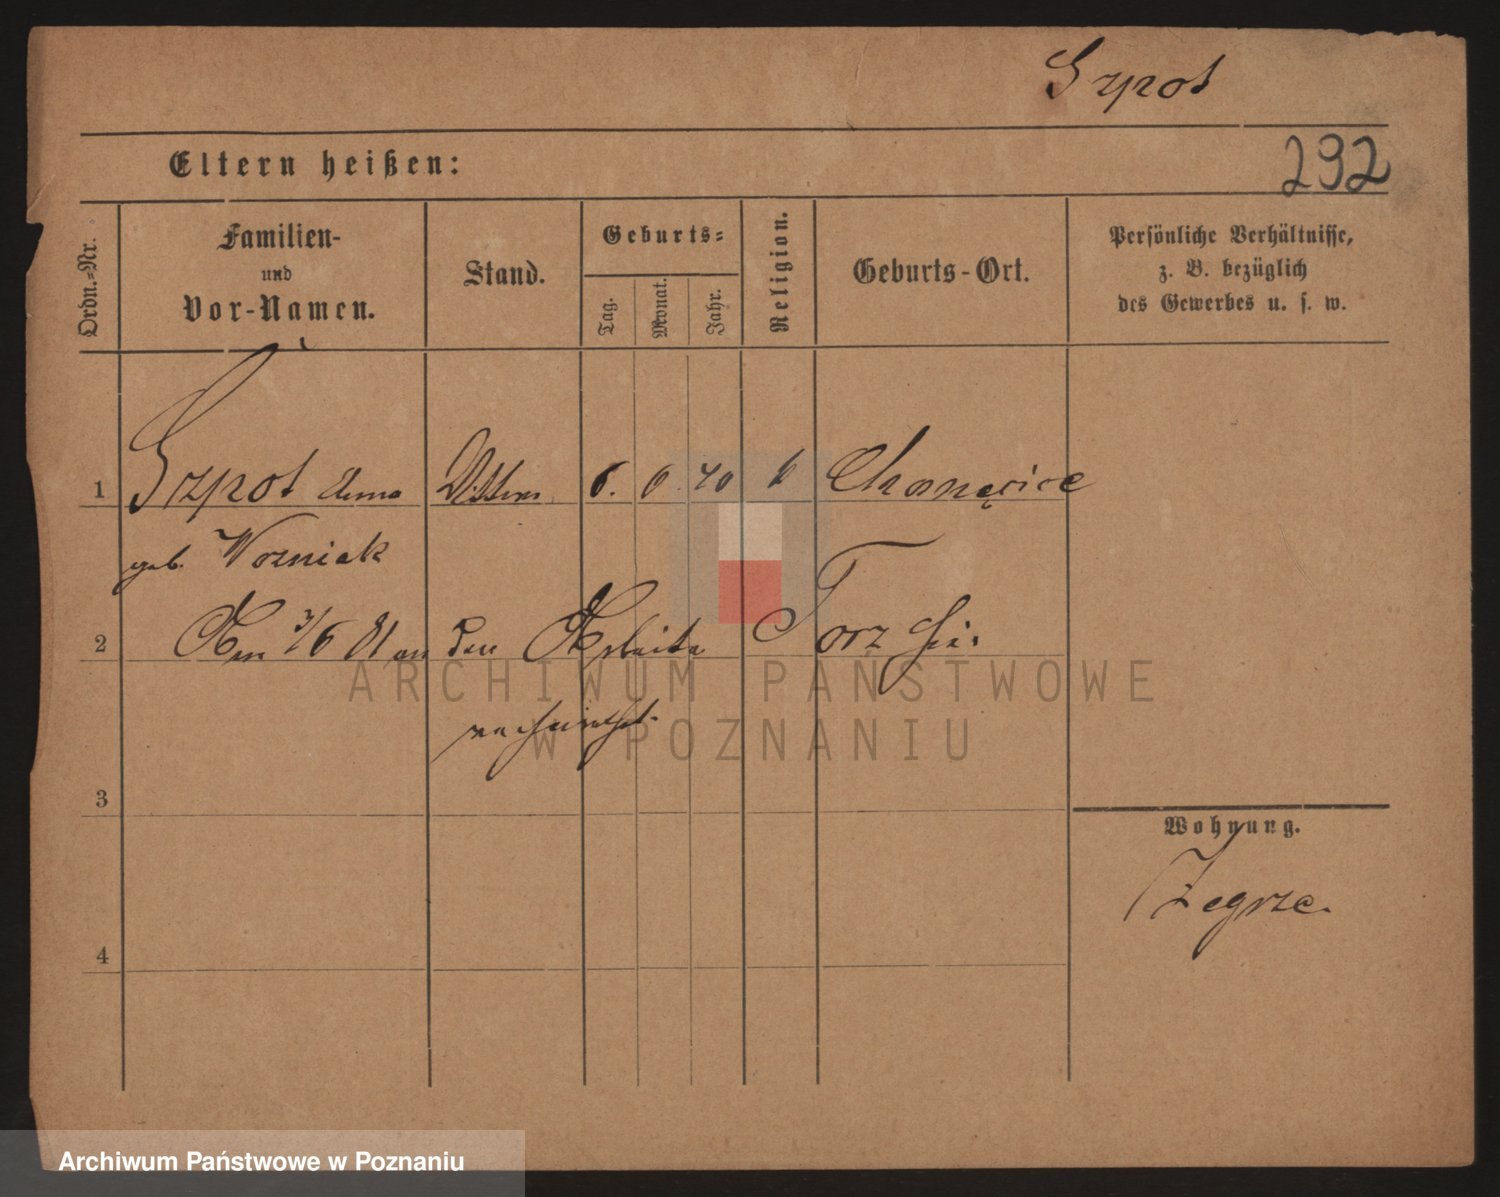 Szpot
292
Eltern heißen:
Ordn.-Nr.
Familien- und Vor-Namen.
Stand.
Geburts-
Tag. Monat. Jahr.
Religion.
Geburts-Ort.
Persönliche Verhältnisse,
z. B. bezüglich
des Gewerbes u. s. w.
1 Szpot Anna 6. 6 40 k
geb. Wozniak
2 Am 3/6 81 an den
3
Wohnung.
Zegrze.
4
ARCHIWUM PAŃSTWOWE
W POZNANIU
Archiwum Państwowe w Poznaniu